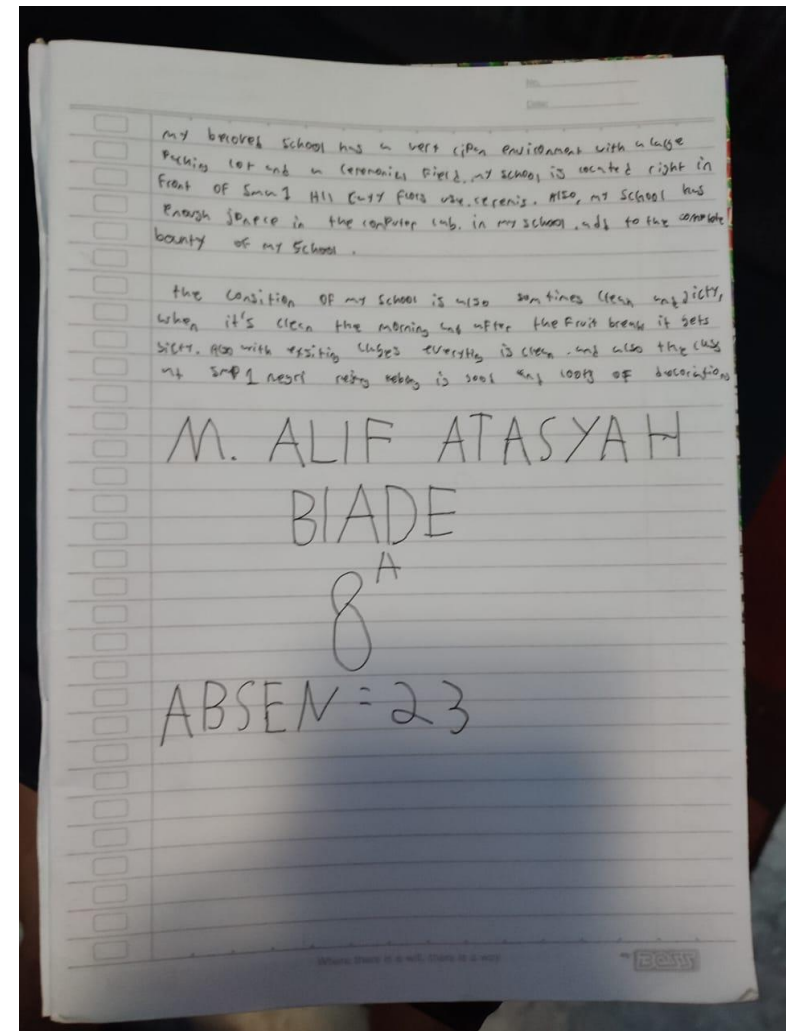 No.
Date
my beloved School has a very clean environment with a large
Parking lot and a ceremonies Field. my school is located right in
Front OF Sma 1 All Floors use. Also, my School has
Enough in the computer lab. in my school. ads to the complete
bounty of my School.
the Consition OF my School is also som times clean and dirty,
when it's cleen the morning and after the Fruit break it gets
dirty. Also with everythg is clean. and also the class
at SmP 1 negri is good and loots of
M. ALIF ATASYAH
BIADE
8 A
ABSEN = 23
Where there is a will, there is a way
my BOSS